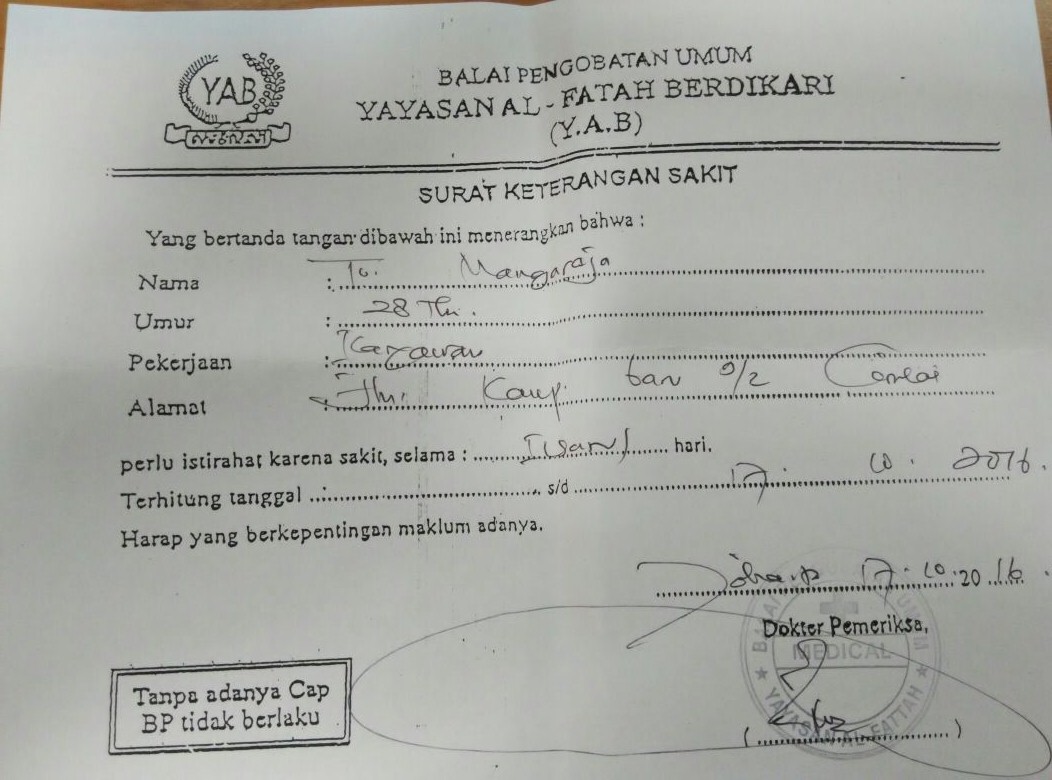 YAB
BALAI PENGOBATAN UMUM
YAYASAN AL - FATAH BERDIKARI
(Y.A.B)
SURAT KETERANGAN SAKIT
Yang bertanda tangan dibawah ini menerangkan bahwa :
Nama : Mangaraja
Umur : 28 Th.
Pekerjaan :
Alamat : Kamp. ban 9/2
perlu istirahat karena sakit, selama : hari.
Terhitung tanggal : s/d 17. 10. 2016.
Harap yang berkepentingan maklum adanya.
17.10.2016.
Dokter Pemeriksa,
MEDICAL
YAYASAN AL-FATTAH
Tanpa adanya Cap
BP tidak berlaku